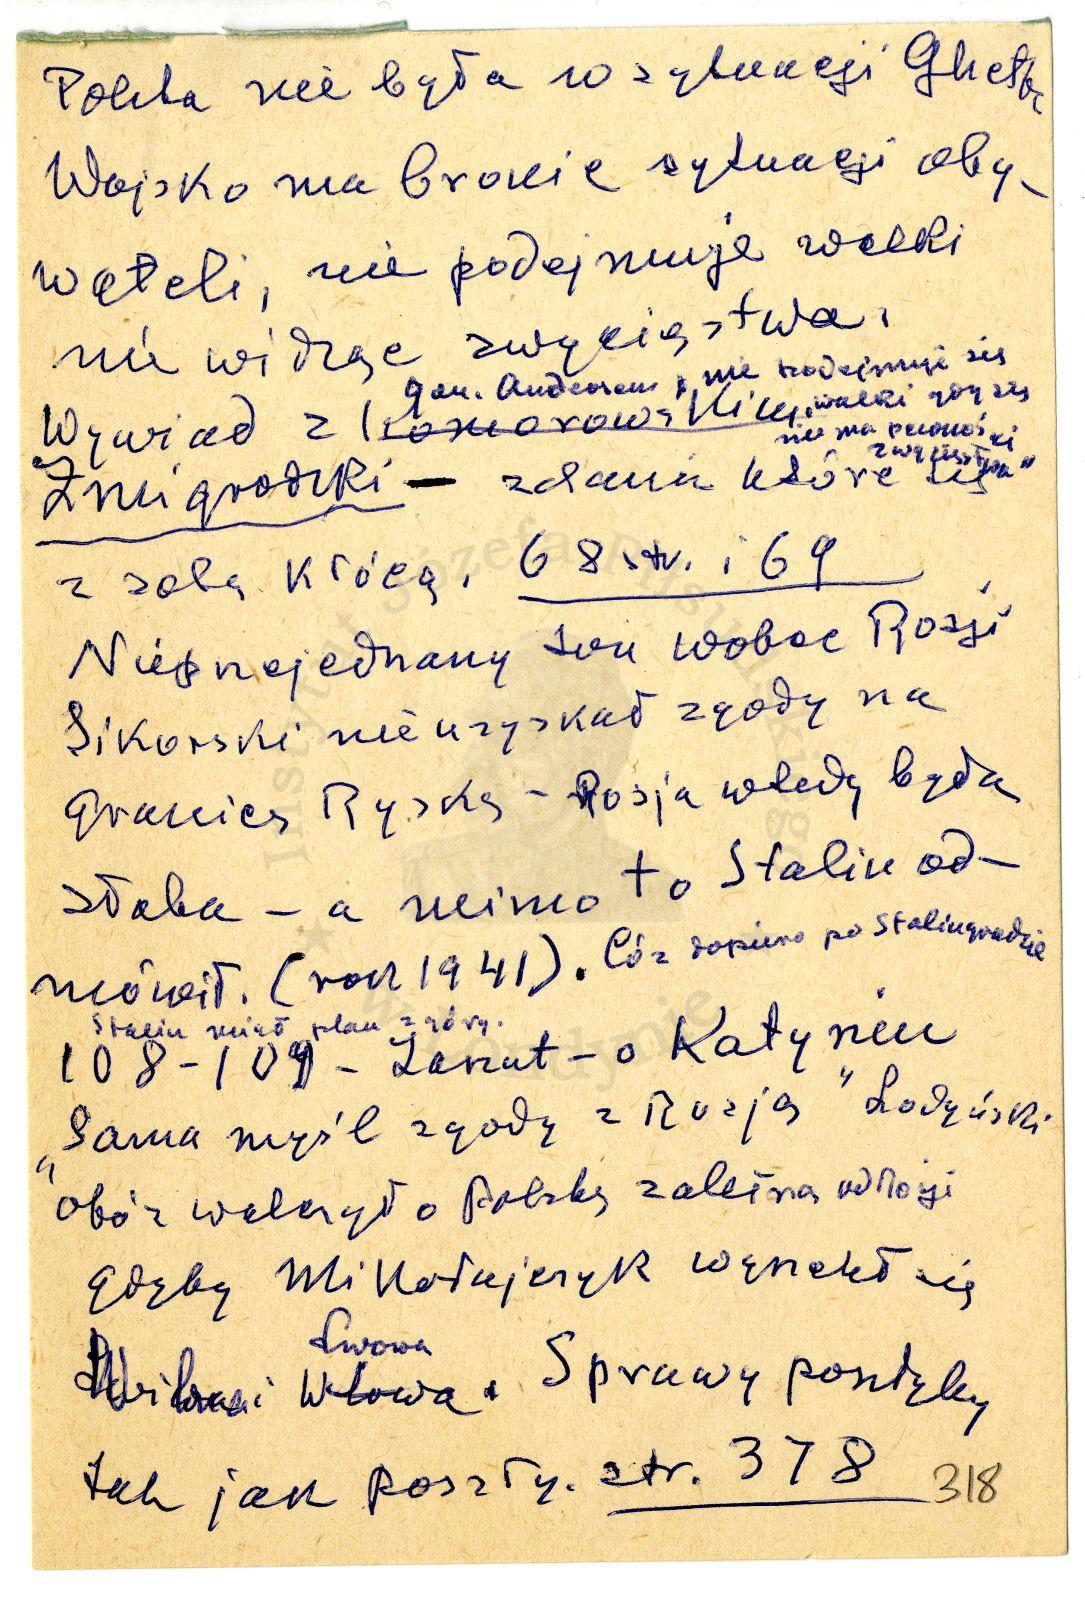 Polska nie była w sytuacji Ghetta
Wojsko ma bronić sytuacji oby-
wateli, nie podejmuje walki
nie widząc zwycięstwa.
gen. Anders nie podejmuje się
Wywiad z Komorowskim, walki gdy się
nie ma pewności
zwycięstwa"
Żmigrodzki – zdania które się
z sobą kłócą. 68 str. i 69
Nieprzejednany ton wobec Rosji
Sikorski nie uzyskał zgody na
granicę Ryską – Rosja wtedy była
słaba – a mimo to Stalin od-
mówił. (rok 1941). Cóż dopiero po Stalingradzie
Stalin miał plan z góry.
108-109 – Łańcut – o Katyniu
"Sama myśl zgody z Rosją" Łodyński
Obóz walczył o Polskę zależną od Rosji
gdyby Mikołajczyk wyrzekł się
Lwowa
Wilna i Włowa. Sprawy poszłyby
tak jak poszły. str. 378
318
Instytut Józefa Piłsudskiego
w Londynie